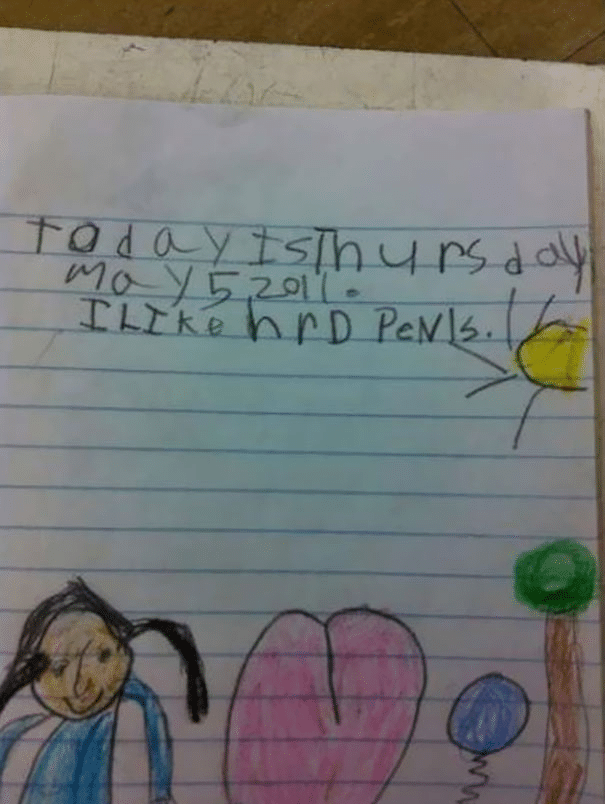 Today Is Thursday
May 5, 2011.
I LIke hrD PeNIs.